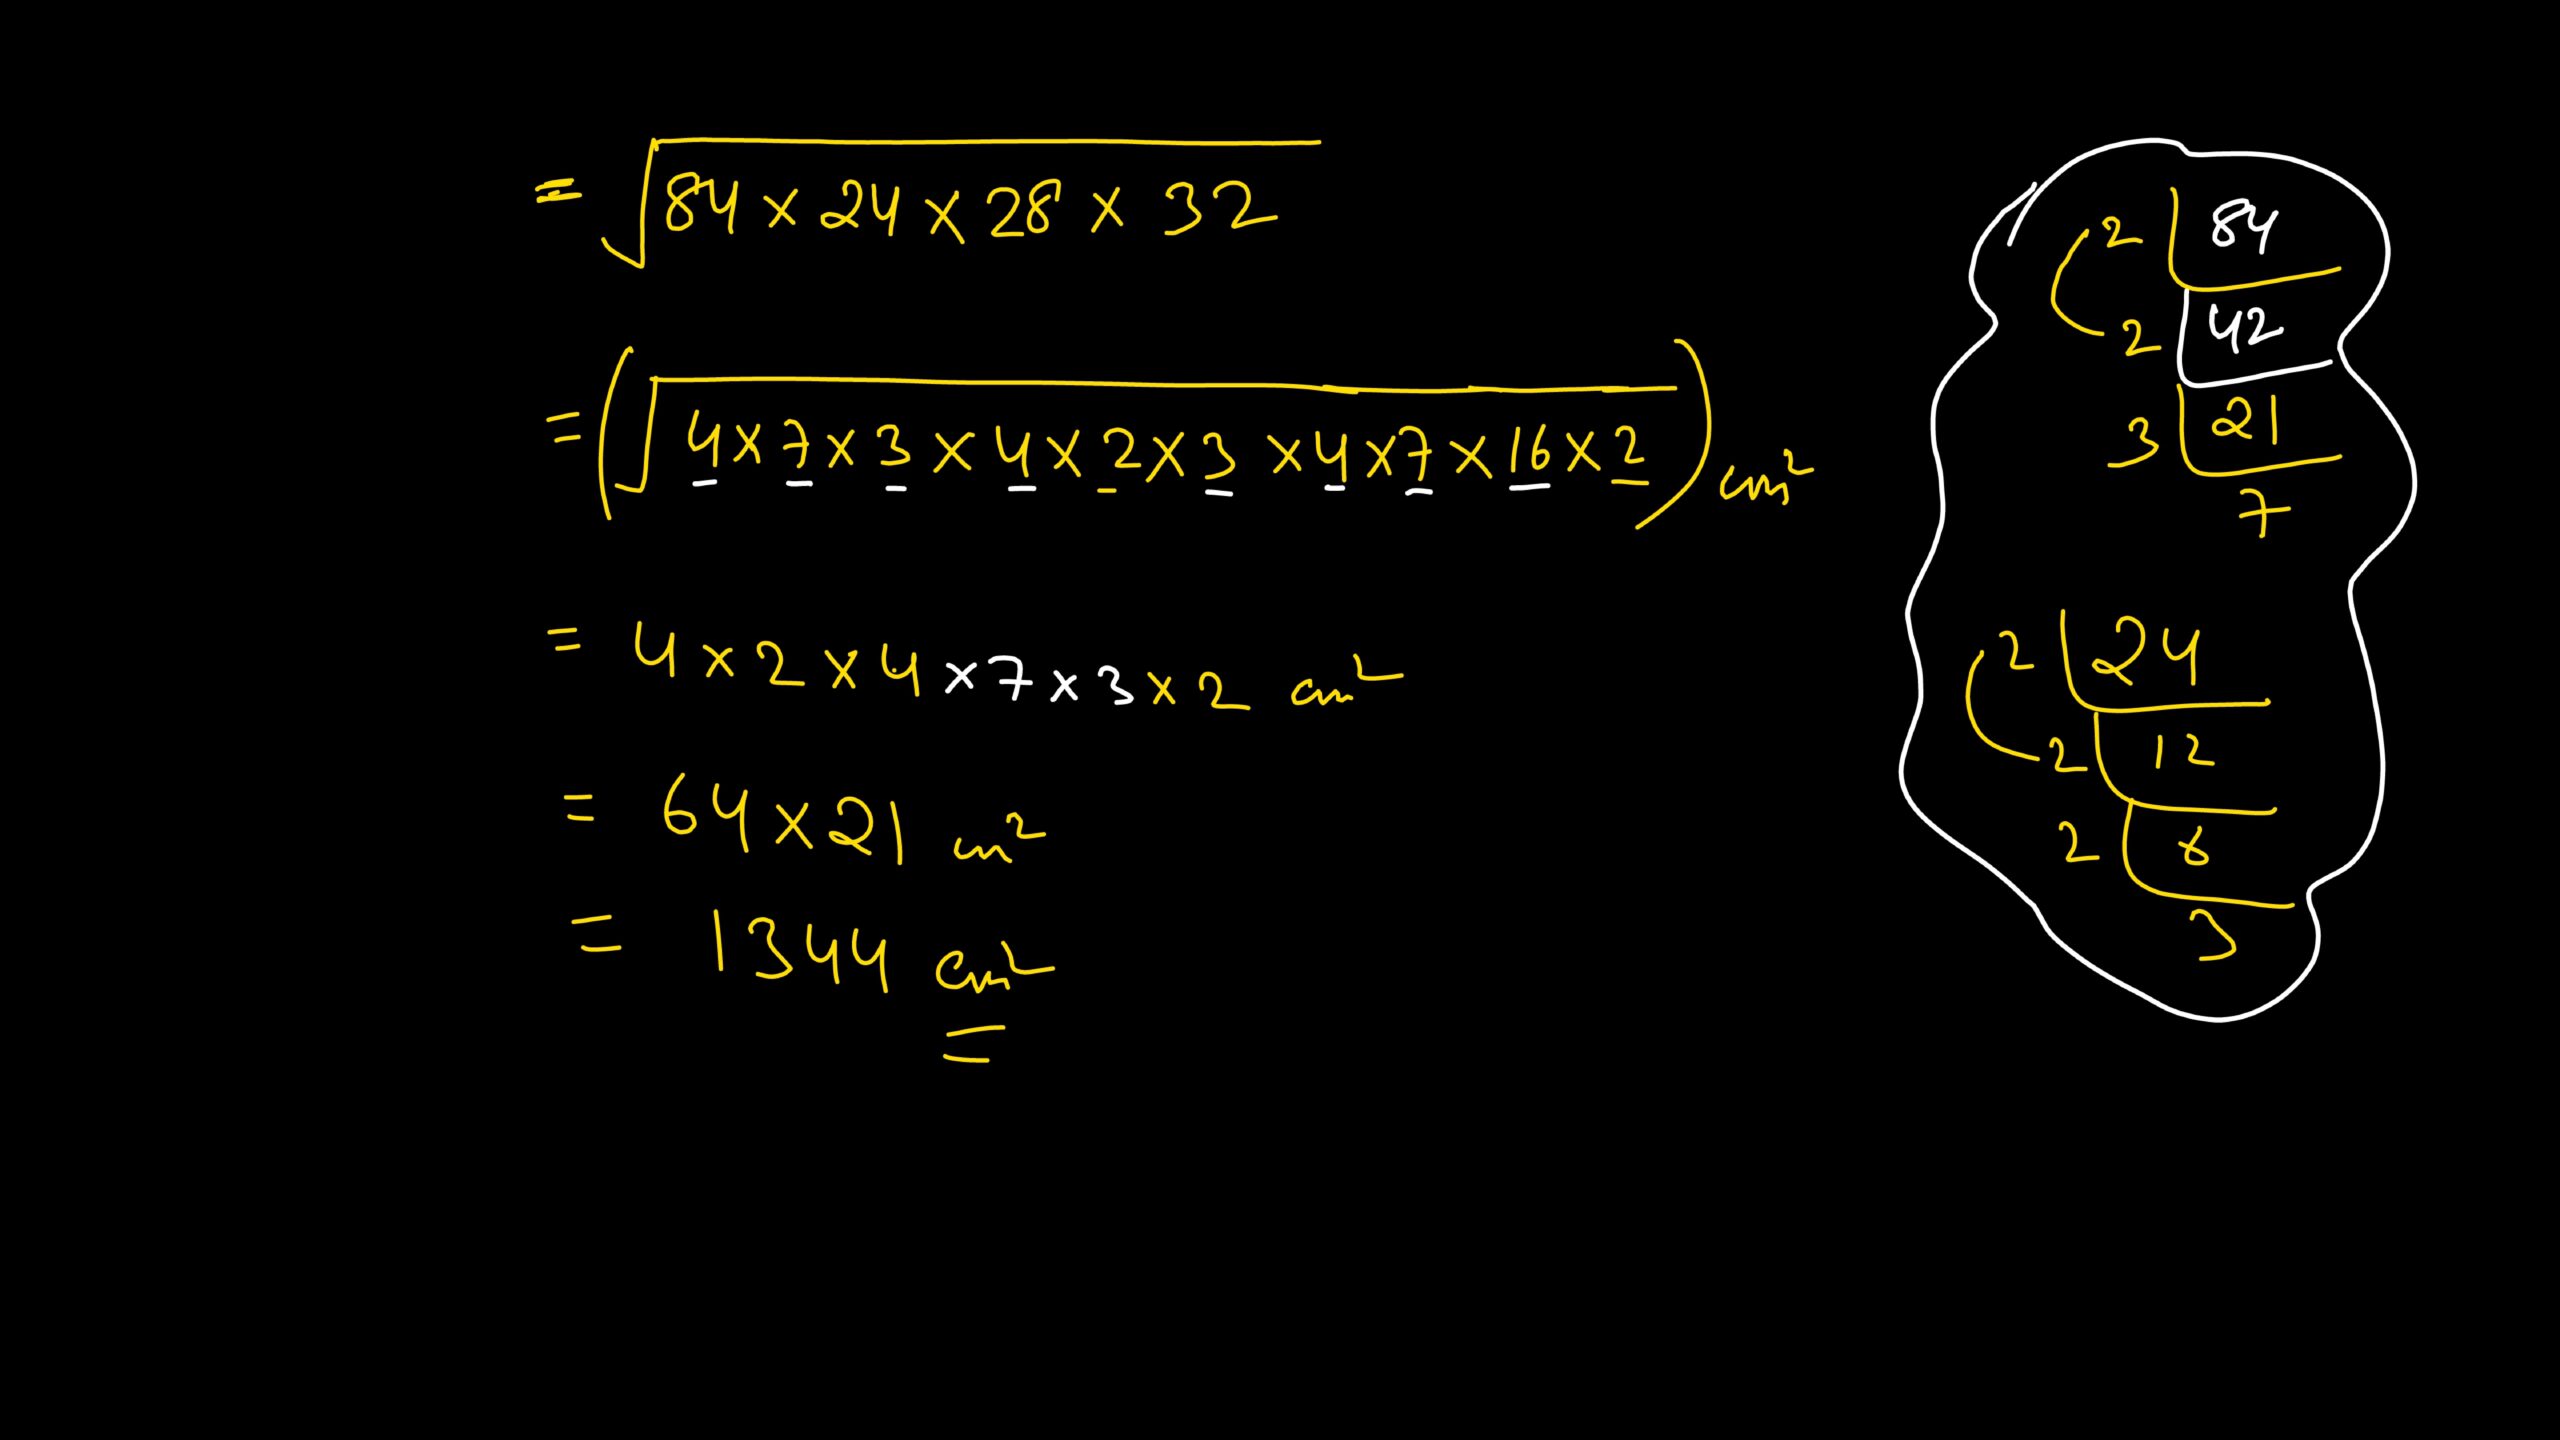 = √84 × 24 × 28 × 32
= (√4 × 7 × 3 × 4 × 2 × 3 × 4 × 7 × 16 × 2) cm²
= 4 × 2 × 4 × 7 × 3 × 2 cm²
= 64 × 21 cm²
= 1344 cm²
2 | 84
2 | 42
3 | 21
7
2 | 24
2 | 12
2 | 6
3